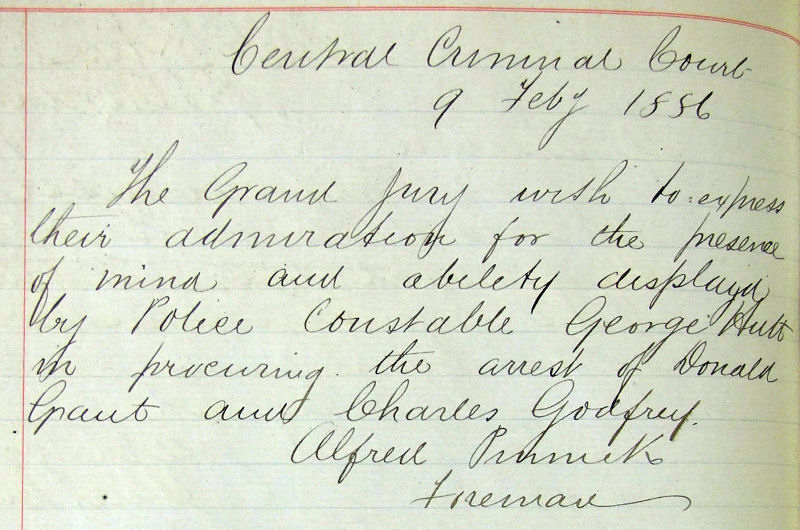 Central Criminal Court
9 Feby 1886
The Grand Jury wish to express
their admiration for the presence
of mind and ability displayd
by Police Constable George Hutt
in procuring the arrest of Donald
Grant and Charles Godfrey.
Alfred
Foreman